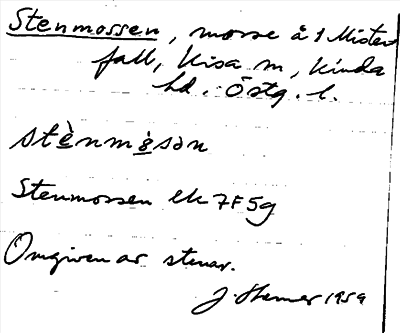 Stenmossen, mosse å 1 Mister
fall, Kisa sn, Kinda
hd. Östg. l.
stènmòsən
Stenmossen ek 7F5g
Omgiven av stenar.
J. Hemer 1959